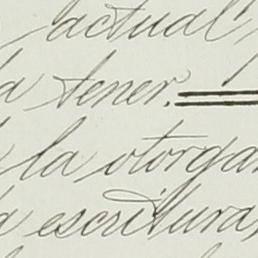 actual
a tener.
la otorga
a escritura,